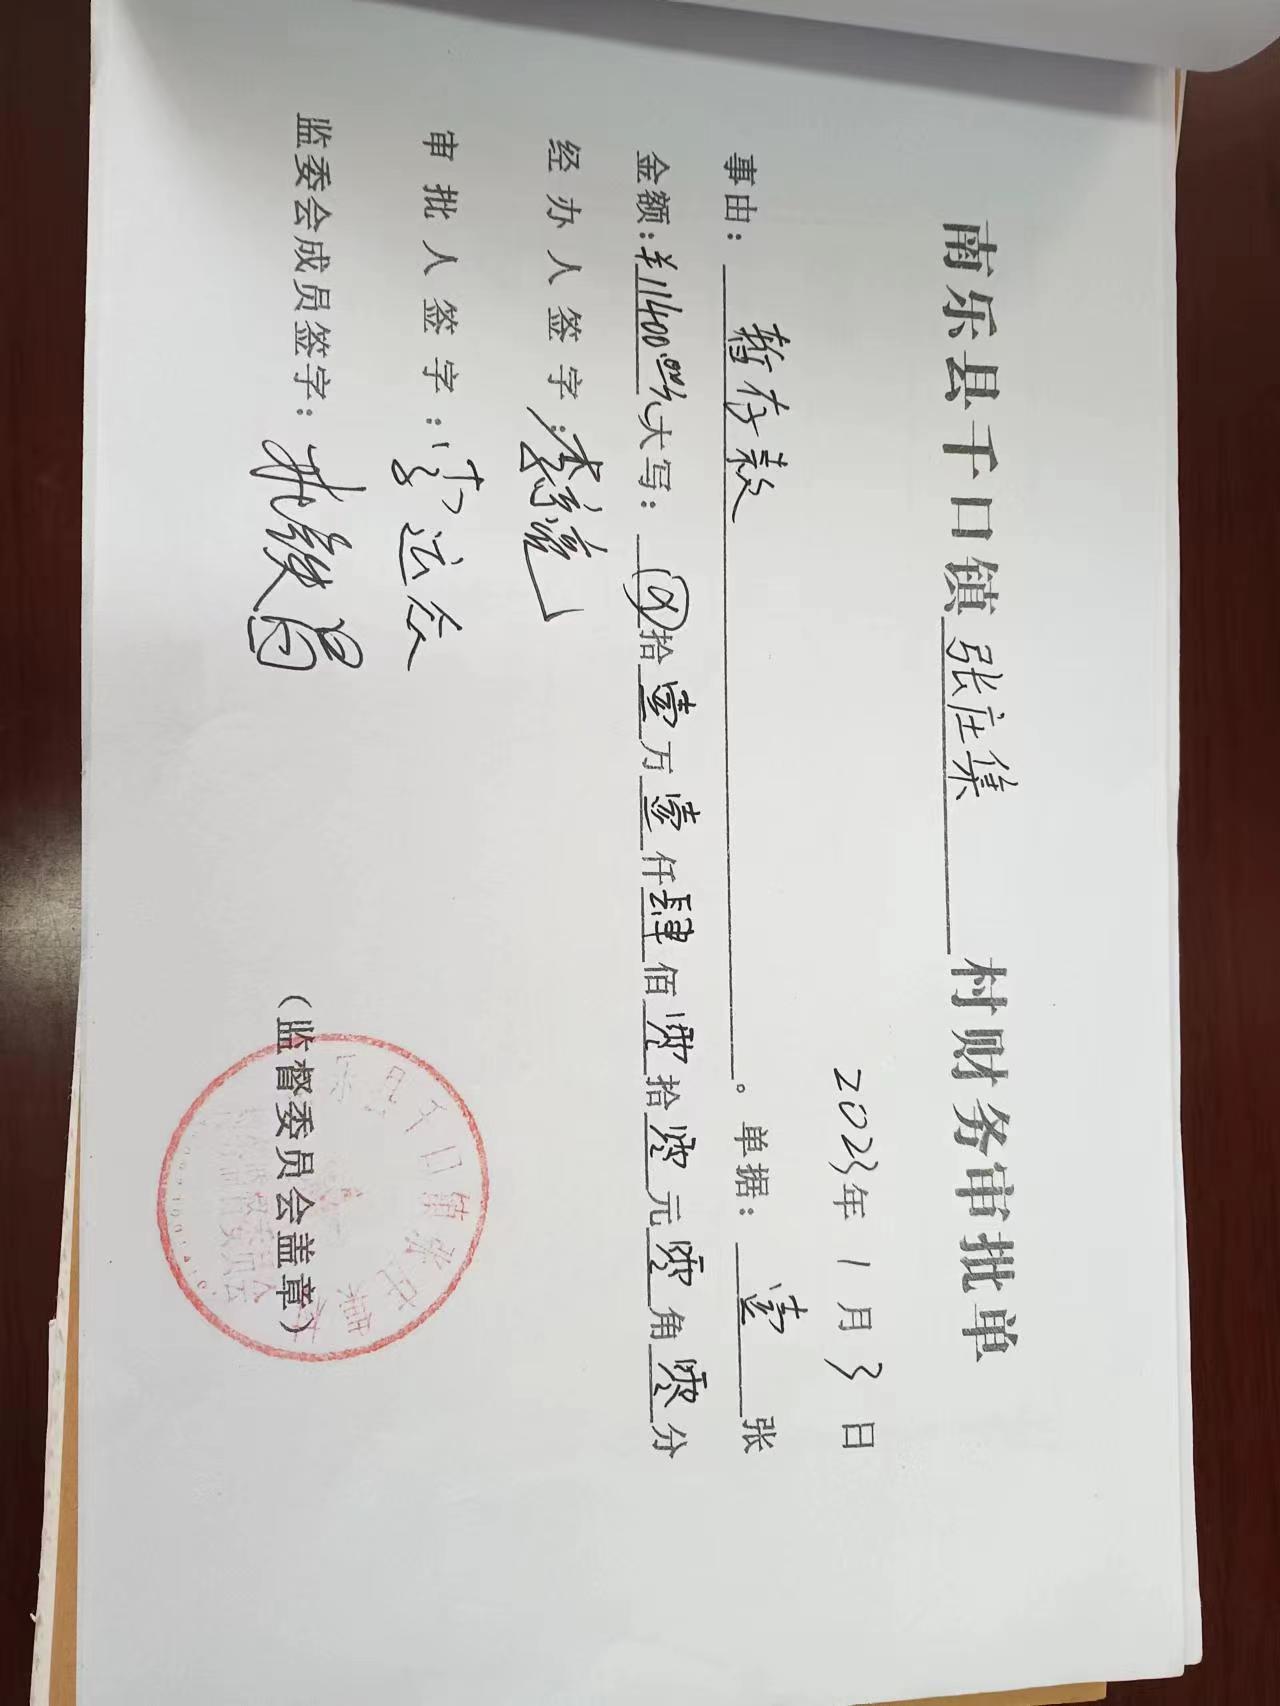 南乐县千口镇张庄集村财务审批单
2023年1月3日
事由：暂存款。单据：壹张
金额：¥11400.00元大写：⊗拾壹万壹仟肆佰零拾零元零角零分
经办人签字：
审批人签字：
监委会成员签字：
（监督委员会盖章）